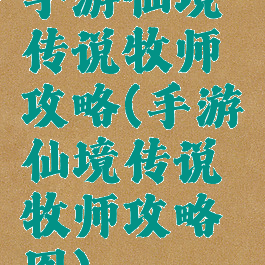 手游仙境
传说牧师
攻略(手游
仙境传说
牧师攻略
图)